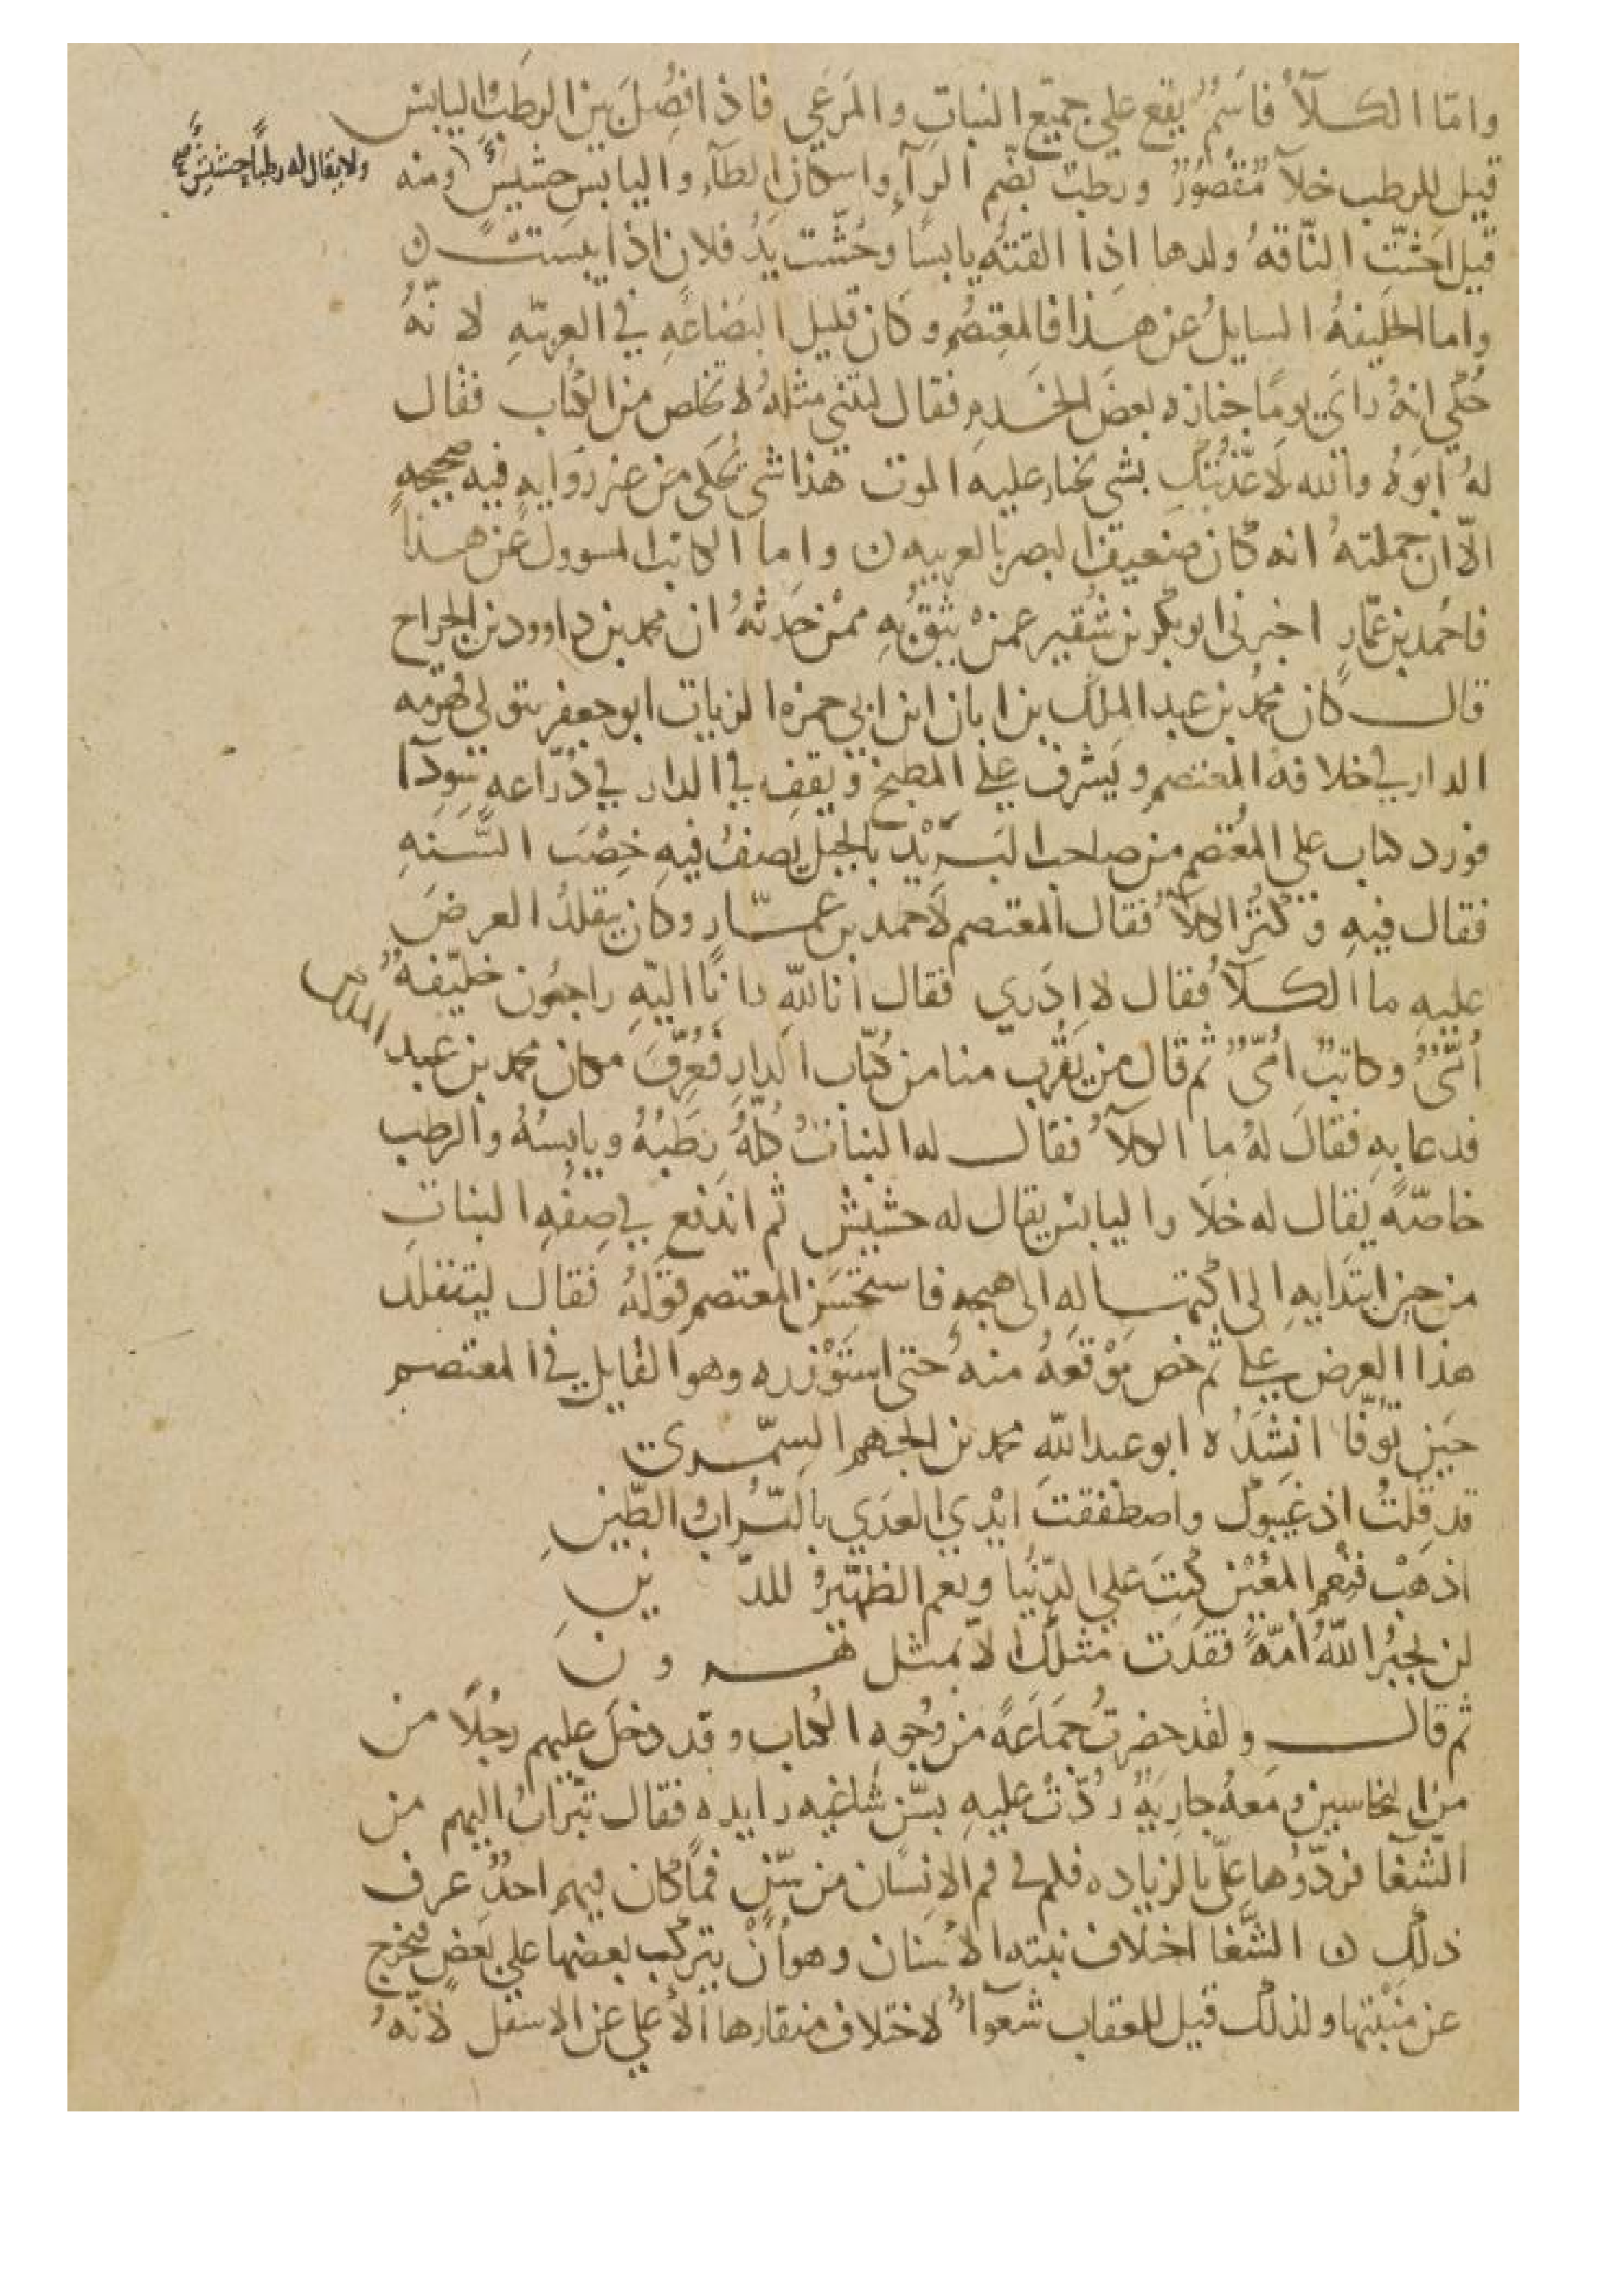 واما الكلأ فاسمٌ يقع على جميع النبات والمرعى فاذا فُصِلَ بين الرطب واليابس
قيل للرطب خلاً مقصورٌ ورطبٌ بضم الرآء واسكان الطآء واليابس حشيشٌ ومنه
ولا يقال له رطباً حشيشٌ صح
قيل احشّت الناقةُ ولدها اذا القته يابساً وحُشّت يدُ فلان اذا يبست ن
واما الخليفةُ السايلُ عن هذا فالمعتصم وكان قليل البضاعهِ في العربيهِ لانّهُ
حُكي انهُ راى يوماً جنازه بعض الخدم فقال ليتني مثلهُ لاتخلص من الكُتاب فقال
لهُ ابوهُ والله لا عذّبتك بشي تختار عليه الموت هذا شي يُحكى من غير روايه فيه صحيحهٍ
الاّ ان جملتهُ انه كان ضعيف البصر بالعربيه ن واما الكاتب المسوول عن هذا
فاحمد بن عمّارٍ اخبرني ابو بكر بن شُقيرٍ عمن يثق بهِ ممن حَدثهُ ان محمد بن داوود بن الجراح
قال كان محمدُ بن عبد الملك بن ابان ابن ابي حمزه الزيات ابو جعفر يتولى قهرمه
الدار في خلافه المعتصم ويُشرف على المطبخ ويقف في الدار في دُرّاعه سَودآ
فورد كتاب على المُعتصم من صاحب البَريد بالجبل يصفُ فيهِ خِصْبَ السَّنهِ
فقال فيهِ وكثُر الكلأُ فقال المعتصم لاحمد بن عمّارٍ وكان يتقلدُ العرضَ
عليهِ ما الكلأ فقال لا ادري فقال انا للهِ وانّا اليهِ راجعون خليفهٌ
أُمّيٌّ وكاتبٌ امّيٌّ ثم قال من يَقرُب منا من كُتّاب الدار فعُرّفَ مكان محمد بن عبد الملك
فدعا بهِ فقالَ لهُ ما الكلأُ فقال له النباتُ كلّهُ رَطبُهُ ويابسُهُ والرطب
خاصّهً يقال له خلا واليابس يقال له حشيش ثم اندفع في صفهِ النباتِ
من حين ابتدايهِ الى اكتهالهِ الى هيجهِ فاستحسن المعتصم قولهُ فقال ليتقلد
هذا العرض علي ثم خص مَوْقعهُ منهُ حتى استوزره وهو القايل في المعتصم
حين توفّا انشَدُه ابو عبد اللهِ محمد بن الجهم السِمّريّ
قد قلتُ اذ غيبوك واصطفقت ايدي العدَي بالتُراب والطينِ
اذهب فنعم المعُين كنتَ على الدنيا ونعم الظهيرُ للدّينِ
لن يجبُرَ اللهُ امّهً فقدت مثلك الا بمثل هرون
ثم قال ولقد حضرتُ جماعهً من وجوهِ الكُتاب وقد دخل عليهم رجُلاً من
من النخاسين ومعهُ جاريةٌ رُدّتْ عليهِ بسّن شاغيه زايده فقال تبرّات اليهم من
الشّغا فردّوُها عليّ بالزياده فلم في فم الانسان من سّنٍ فما كان فيهم احدٌ عرف
ذلك ن الشَّغا اختلاف نبته الاسنان وهو أنْ يتركب بعضها على بَعضٍ فيخرج
عن منْبتها ولذلك قيل للعقاب شغوآءُ لاختلاف منقارها الأعلى عن الاسفل لانّهُ